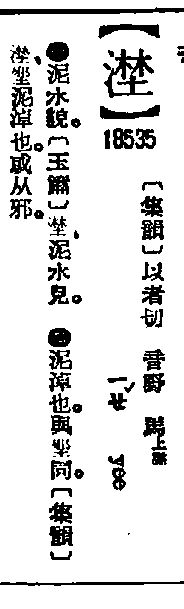 【漜】
18535
〔集韻〕以者切 音野 馬上聲
ㄧㄝˇ yee
㊀泥水貌。〔玉篇〕漜、泥水皃。㊁泥淖也。與同〔集韻〕
漜、泥淖也。或从邪。